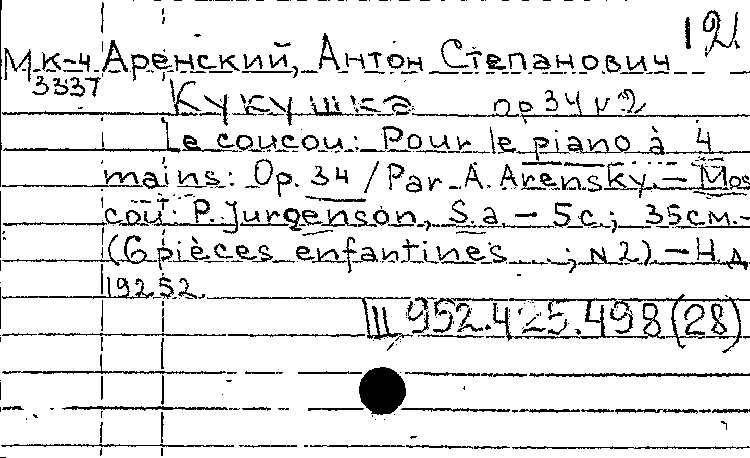 121
МК-4 Аренский, Антон Степанович
3337
Кукушка ор 34 N 2
Le coucou: Pour le piano à 4
mains: Op. 34 / Par A. Arensky. – Mos
cou: P. Jurgenson, S.a. – 5 с.; 35 см. –
(6 pièces enfantines ...; N 2) – Н.д.
19252.
Ш 952.425.498(28)